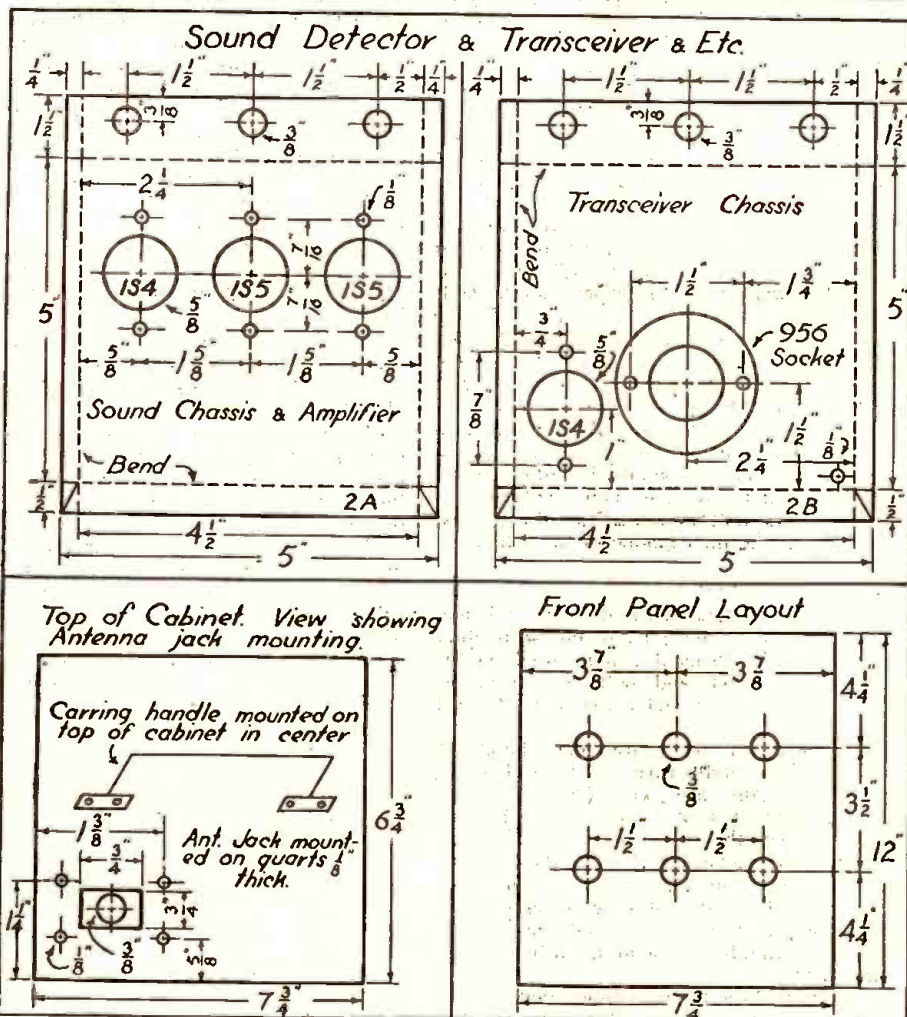 Sound Detector & Transceiver & Etc.
1/4" 1 1/2" 1 1/2" 1/2" 1/4"
1 1/2"
3/8"
3/8"
2 1/4"
1/8"
7/16"
7/16"
1S4 1S5 1S5
5"
5/8"
5/8" 1 5/8" 1 5/8" 5/8"
Sound Chassis & Amplifier
Bend
1/2"
2A
4 1/2"
5"
1/4" 1 1/2" 1 1/2" 1/2" 1/4"
3/8"
3/8"
1 1/2"
Transceiver Chassis
Bend
1 1/2" 1 3/4"
3/4"
5/8"
956
Socket
7/8"
1S4
1"
1 1/2"
5"
2 1/4"
1/8"
2B
1/2"
4 1/2"
5"
Top of Cabinet. View showing
Antenna jack mounting.
Carring handle mounted on
top of cabinet in center
1 3/8"
3/4"
Ant. Jack mount-
ed on quarts 1/8"
thick.
6 3/4"
1 1/4"
3/4"
1/8"
3/8"
5/8"
7 3/4"
Front Panel Layout
3 7/8" 3 7/8"
4 1/4"
3/8"
3 1/2"
12"
1 1/2" 1 1/2"
4 1/4"
7 3/4"